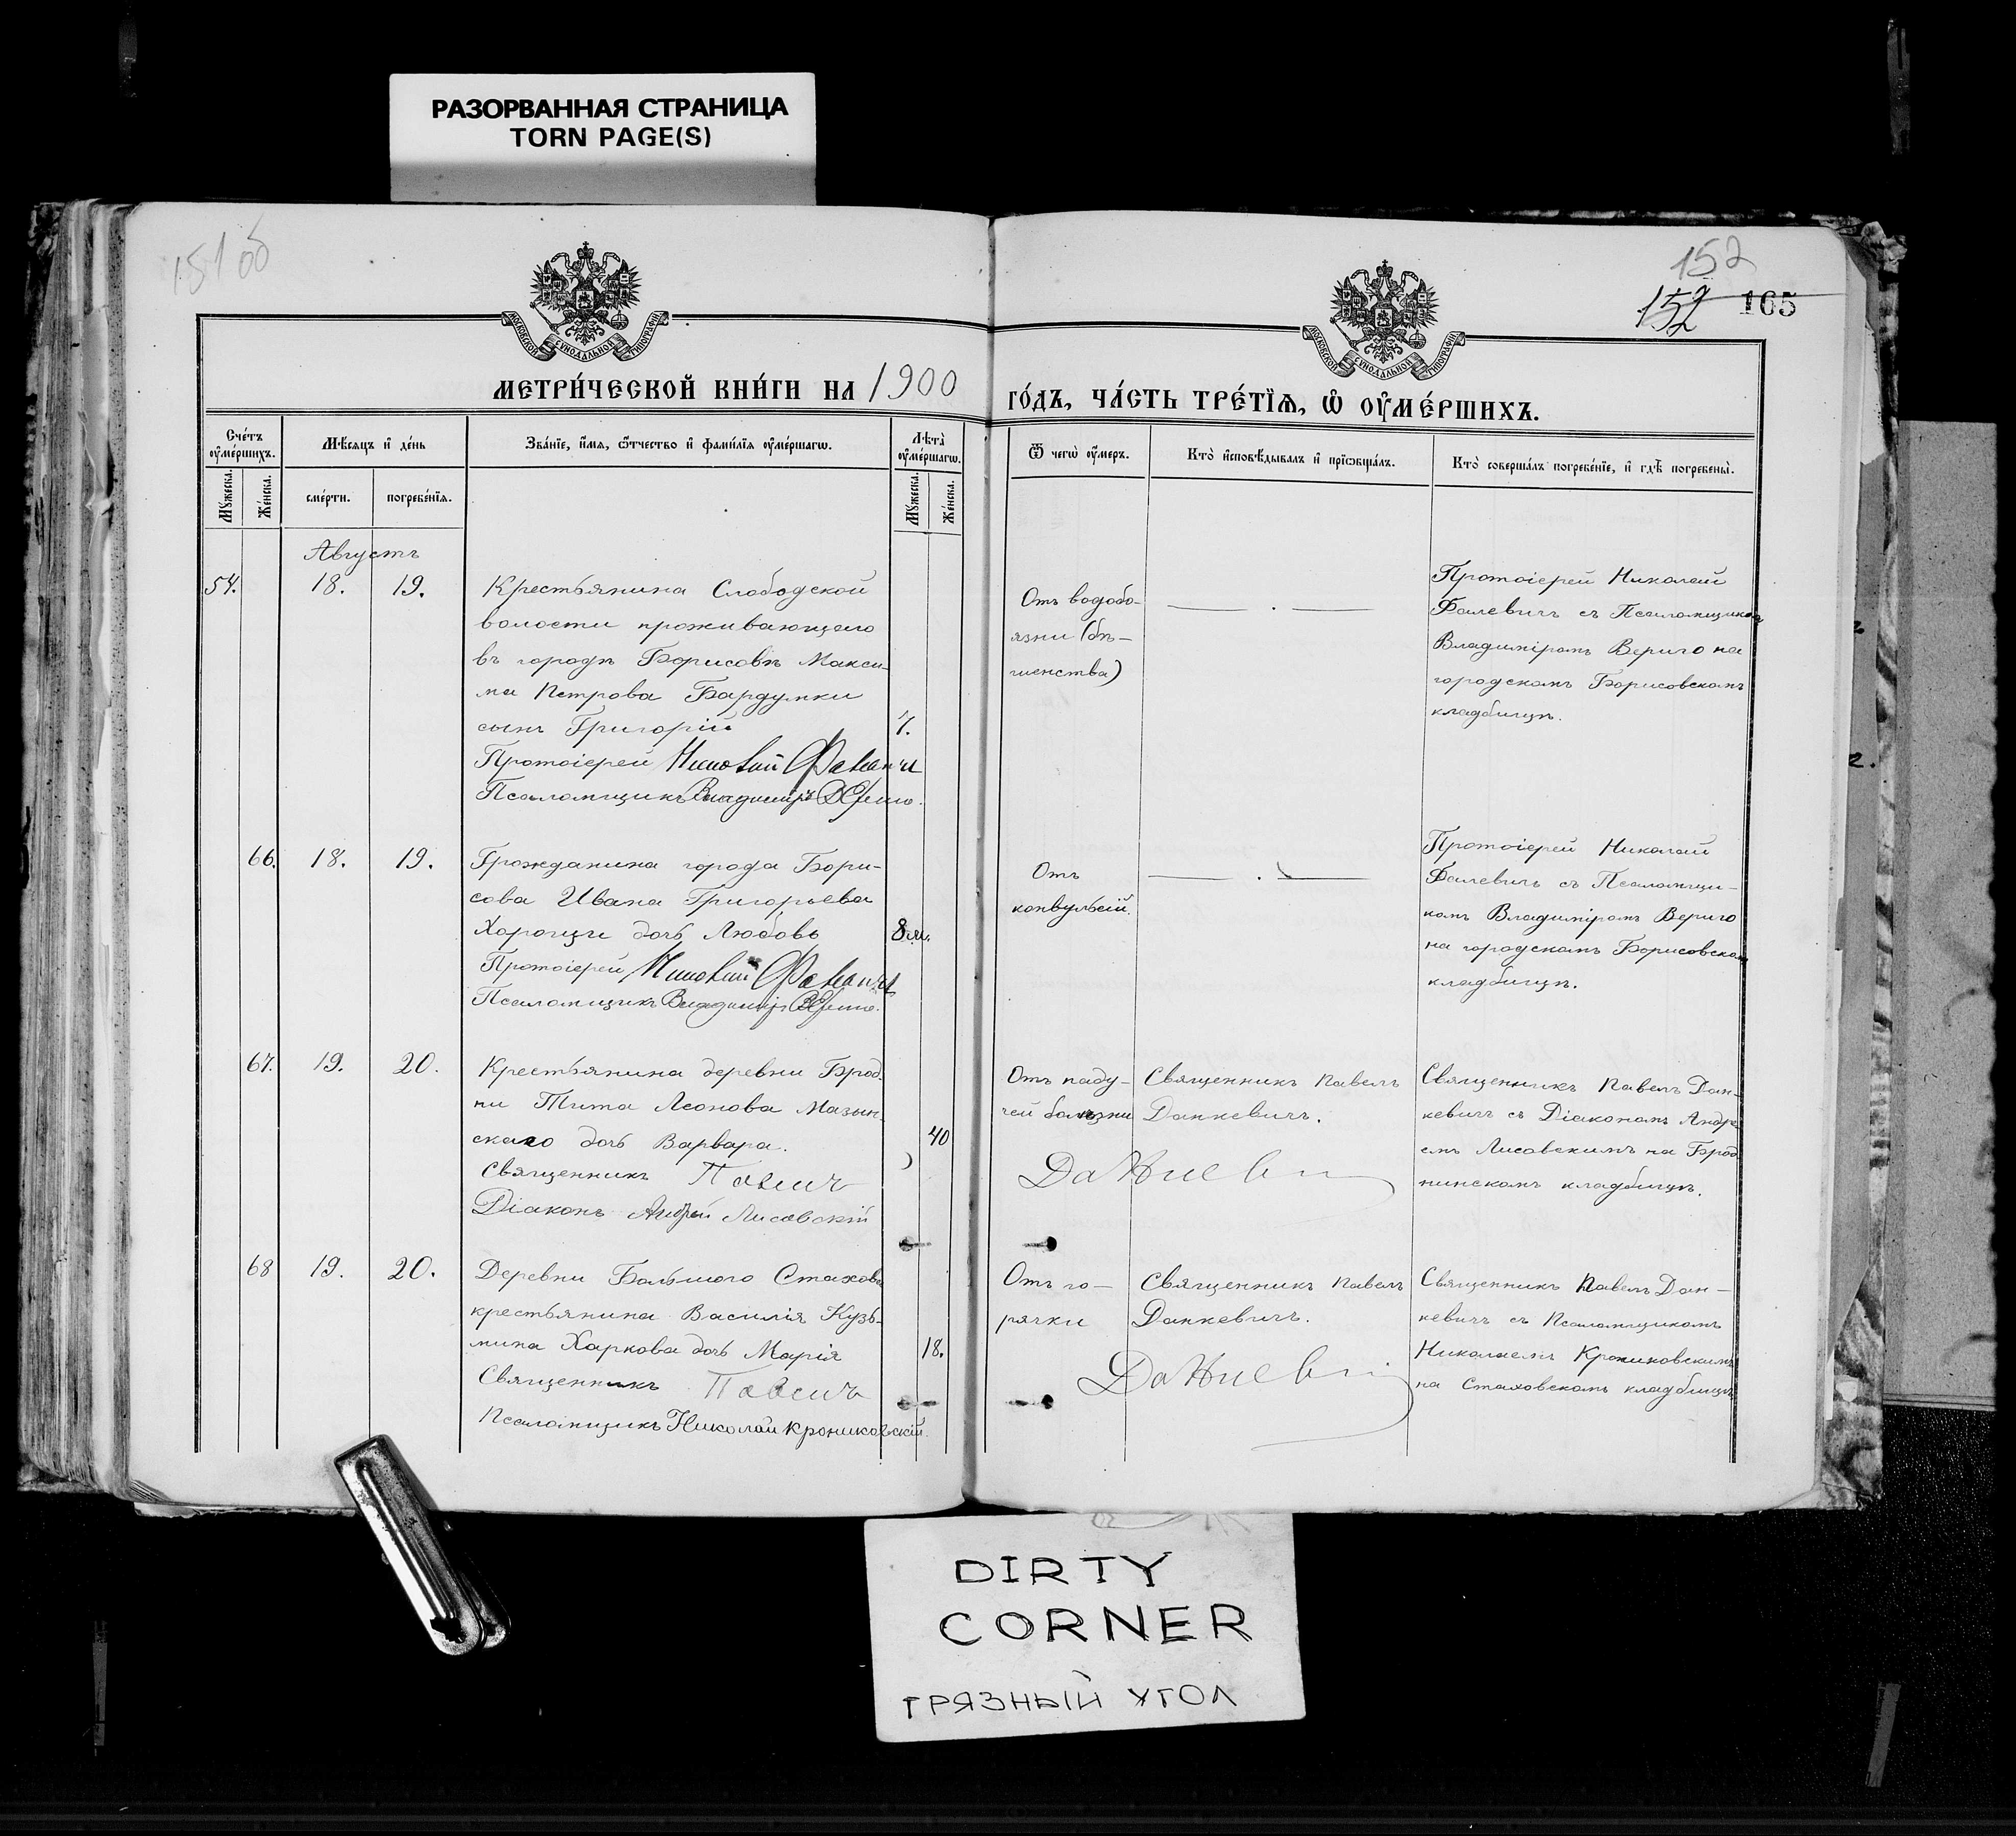 РАЗОРВАННАЯ СТРАНИЦА
TORN PAGE(S)
151 об
152
152 165
МОСКОВСКОЙ СѴНОДАЛЬНОЙ ТИПОГРАФІИ
МОСКОВСКОЙ СѴНОДАЛЬНОЙ ТИПОГРАФІИ
МЕТРИ́ЧЕСКОЙ КНИ́ГИ НА 1900 ГО́ДЪ, ЧА́СТЬ ТРЕ́ТЇѦ, Ѽ ОУ҆МЕ́РШИХЪ.
Сче́тъ оу҆ме́ршихъ.
Мѣ́сяцъ и҆ де́нь
Зва́нїе, и҆́мѧ, ѻ҆́тчество и҆ фами́лїѧ оу҆ме́ршагѡ.
Лѣ̀та оу҆ме́ршагѡ.
Ѿ чегѡ̀ оу҆́меръ.
Кто̀ и҆сповѣ́дывалъ и҆ прїѡбща́лъ.
Кто̀ соверша́лъ погребе́нїе, и҆ гдѣ̀ погребены̀.
Мꙋ́жеска.
Же́нска.
сме́рти.
погребе́нїѧ.
Мꙋ́жеска.
Же́нска.
Августъ
54. 18. 19.
Крестьянина Слободской
волости проживающаго
въ городѣ Борисовѣ Макси-
ма Петрова Бардумки
сынъ Григорій 7.
Протоіерей Николай
Псаломщикъ Владиміръ Вериго.
Отъ водобо-
язни (бѣ-
шенства)
Протоіерей Николай
Фалевичъ съ Псаломщикомъ
Владиміромъ Вериго на
городскомъ Борисовскомъ
кладбищѣ.
66. 18. 19.
Гражданина города Бори-
сова Ивана Григорьева
дочь Любовь 8 м.
Протоіерей Николай
Псаломщикъ Владиміръ Вериго.
Отъ
конвульсій.
Протоіерей Николай
Фалевичъ съ Псаломщи-
комъ Владиміромъ Вериго
на городскомъ Борисовскомъ
кладбищѣ.
67. 19. 20.
Крестьянина деревни Брод-
ни Тита Леонова Мазын-
скаго дочь Варвара. 40
Священникъ Павелъ
Діаконъ Андрей Лисовскій
Отъ паду-
чей болѣзни
Священникъ Павелъ
Данкевичъ.
Данкевич
Священникъ Павелъ Дан-
кевичъ съ Діакономъ Андре-
емъ Лисовскимъ на Брод-
нинскомъ кладбищѣ.
68 19. 20.
Деревни Большого Стахова
крестьянина Василія Кузь-
мина Харкова дочь Марія 18.
Священникъ Павелъ
Псаломщикъ Николай Крониковскій.
Отъ го-
рячки
Священникъ Павелъ
Данкевичъ.
Данкевич
Священникъ Павелъ Дан-
кевичъ съ Псаломщикомъ
Николаемъ Крониковскимъ
на Стаховскомъ кладбищѣ
DIRTY
CORNER
ГРЯЗНЫЙ УГОЛ